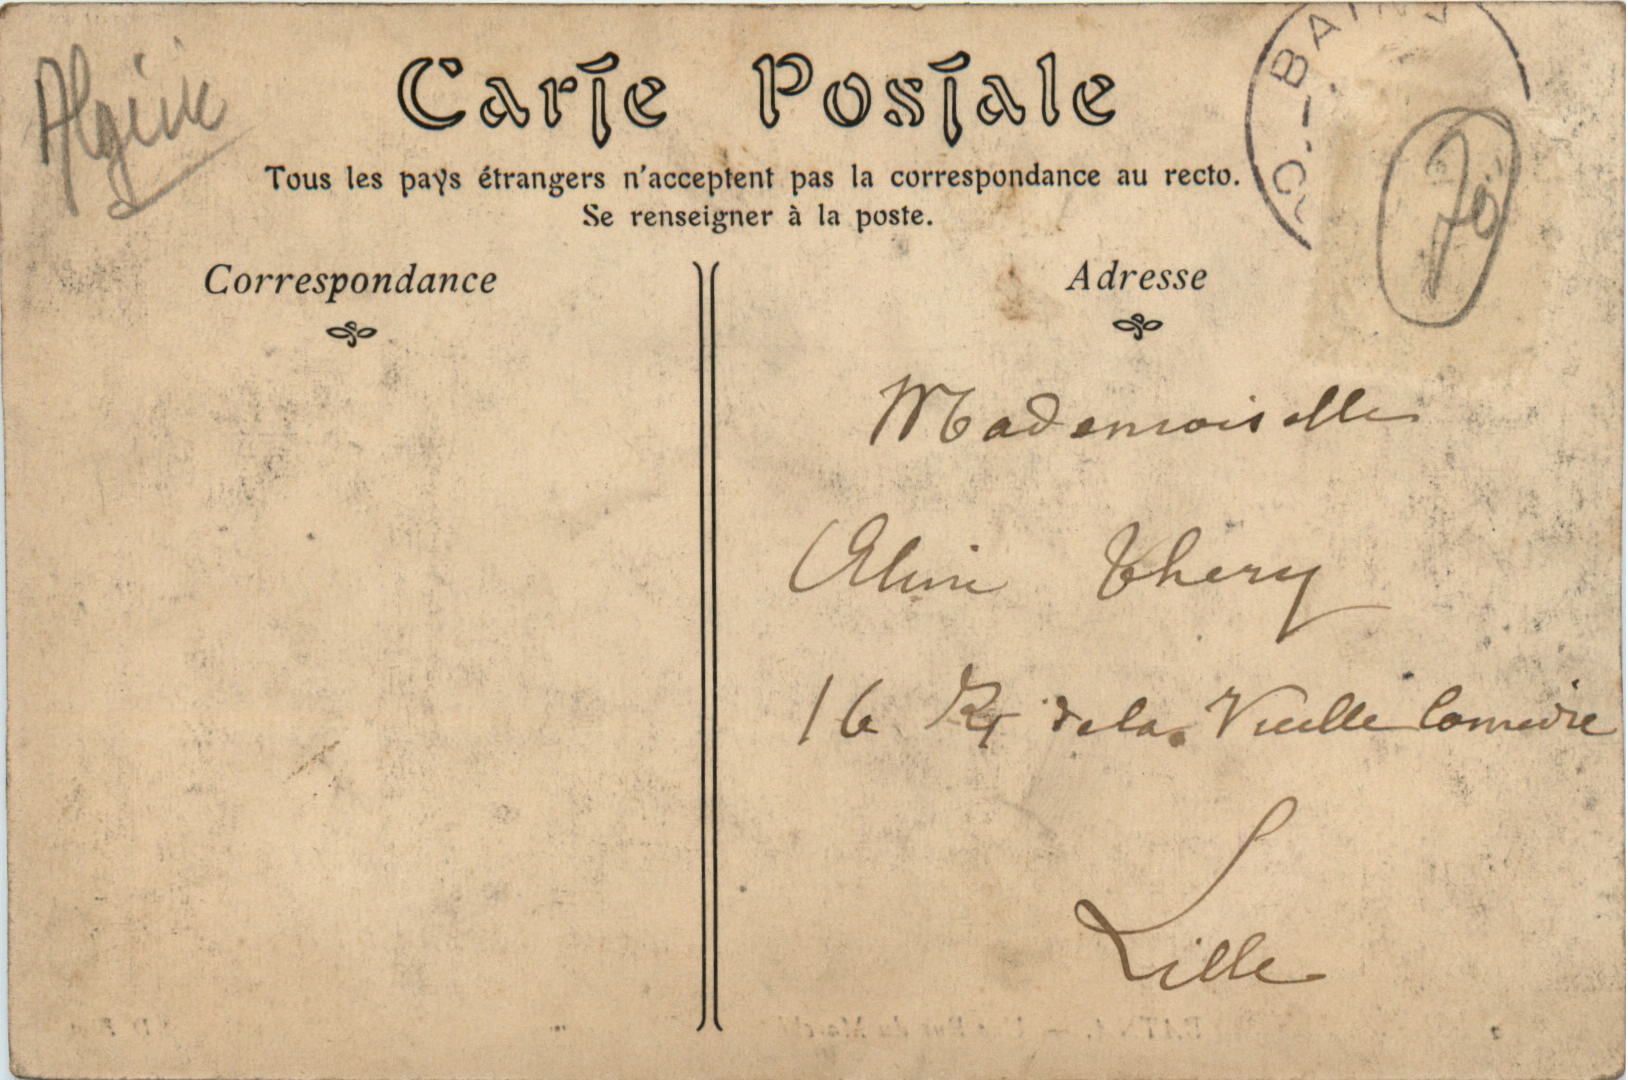 Algérie
Carte Postale
Tous les pays étrangers n'acceptent pas la correspondance au recto.
Se renseigner à la poste.
Correspondance
Adresse
BAINS
70
Mademoiselle
Aline Thery
16 Rue de la Vieille Comédie
Lille